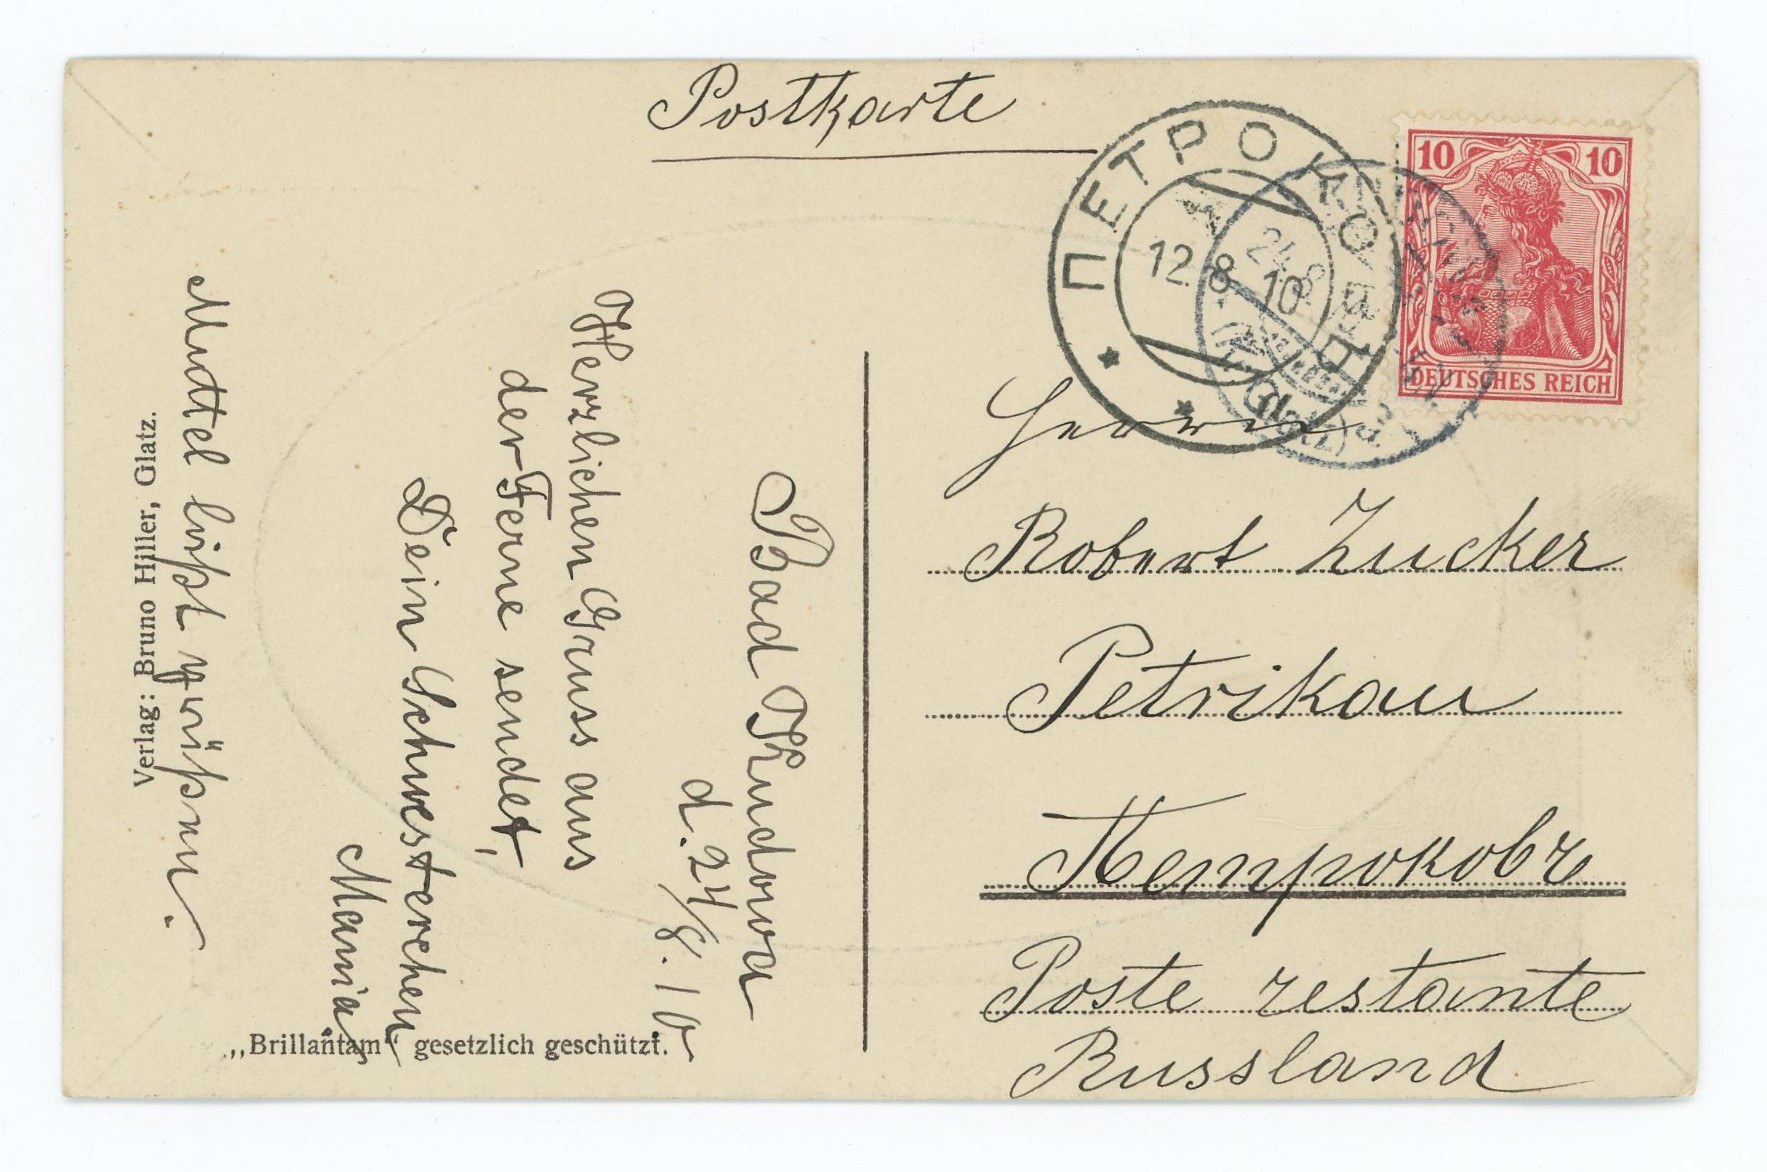 Postkarte
ПЕТРОКОВ
12.8.10
24.8.
(Glatz)
10 10
DEUTSCHES REICH
Herrn
Robert Zucker
Petrikau
Петроковъ
Poste restante
Russland
Bad Kudowa
d. 24/8. 10
Herzlichen Gruss aus
der Ferne sendet,
Dein Schwesterchen
Mania
Muttel lißt grüßen.
Verlag: Bruno Hiller, Glatz.
„Brillantam“ gesetzlich geschützt.